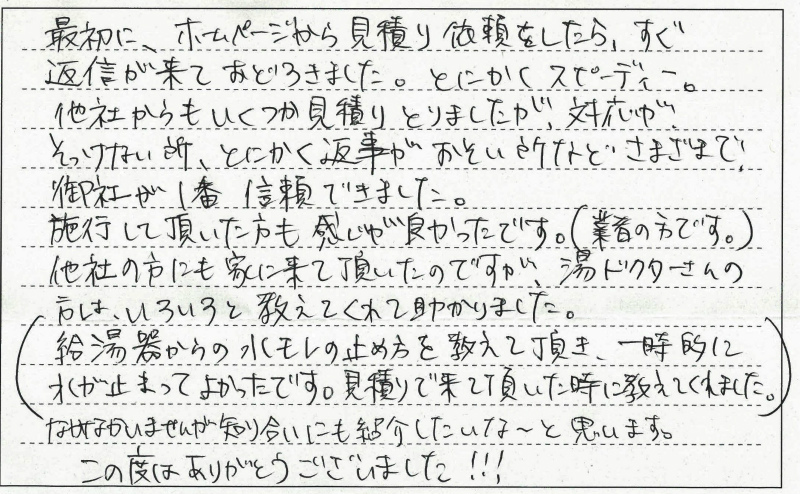 最初に、ホームページから見積り依頼をしたら、すぐ
返信が来ておどろきました。とにかくスピーディー。
他社からもいくつか見積りとりましたが、対応が、
そっけない所、とにかく返事がおそい所などさまざまで、
御社が1番 信頼できました。
施行して頂いた方も感じが良かったです。(業者の方です。)
他社の方にも家に来て頂いたのですが、湯ドクターさんの
方は、いろいろと教えてくれて助かりました。
(給湯器からの水モレの止め方を教えて頂き、一時的に
水が止まってよかったです。見積りで来て頂いた時に教えてくれました。)
なかなかいませんが知り合いにも紹介したいな〜と思います。
この度はありがとうございました!!!